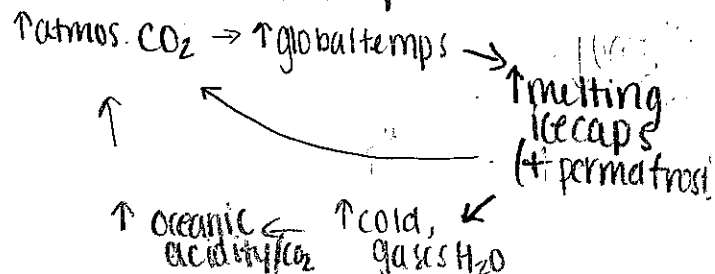 ↑atmos. CO₂ → ↑globaltemps →
↑melting
icecaps
(+ permafrost)
↑ oceanic ← ↑cold,
acidity/CO₂ gases H₂O